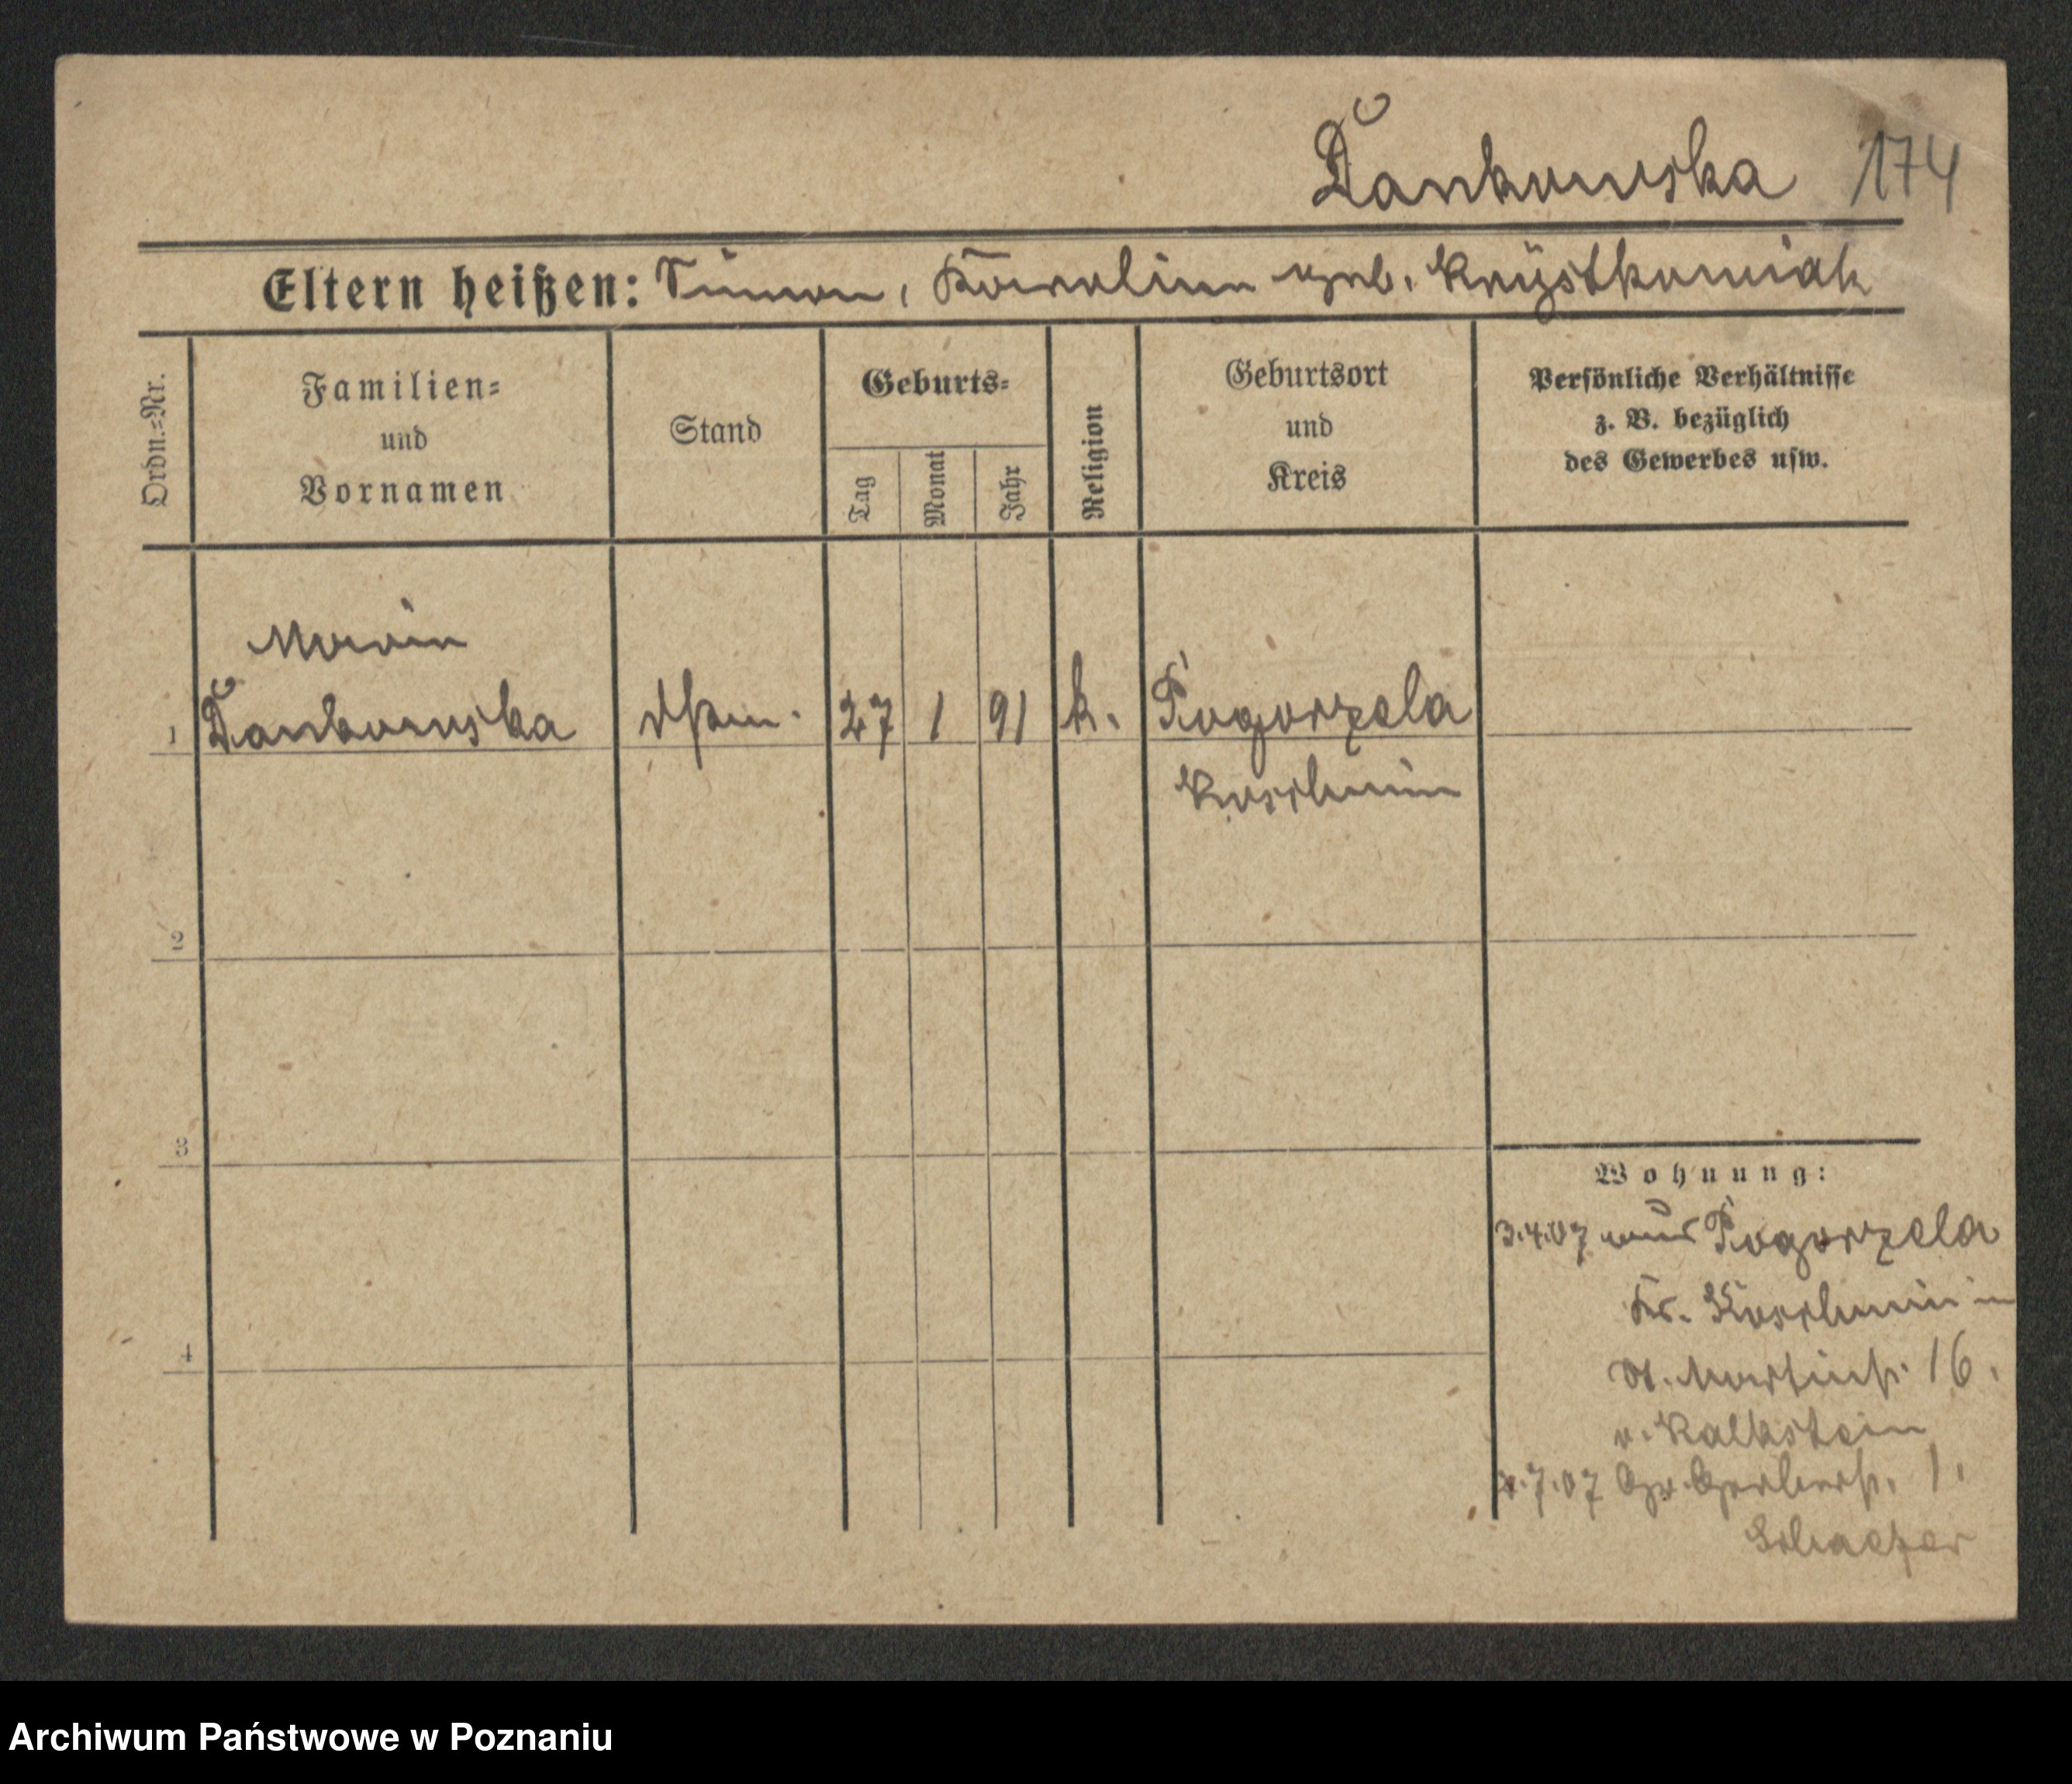 Dankowska 174
Eltern heißen: Simon, Karoline geb. Krystkowiak
Ordn.=Nr.
Familien=
und
Vornamen
Stand
Geburts=
Tag
Monat
Jahr
Religion
Geburtsort
und
Kreis
Persönliche Verhältnisse
z. B. bezüglich
des Gewerbes usw.
Marie
1 Dankowska 27 1 91 k. Pogorzela
Koschmin
2
3
4
Wohnung:
3.4.07 aus Pogorzela
Kr. Koschmin in
St. Martinstr. 16.
v. Kalkstein
.7.07 Gr. Gerberstr. 1.
Schaefer
Archiwum Państwowe w Poznaniu